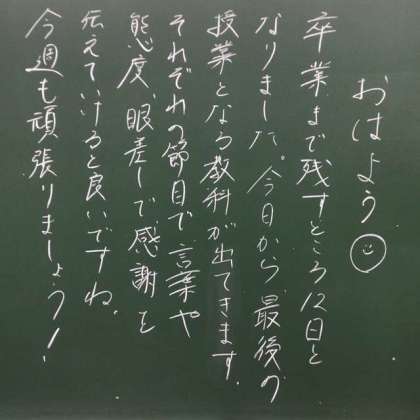 おはよう
卒業まで残すところ12日と
なりました。今日から、最後の
授業となる教科が出てきます。
それぞれの節目で言葉や
態度、眼差しで感謝を
伝えていけると良いですね。
今週も頑張りましょう!